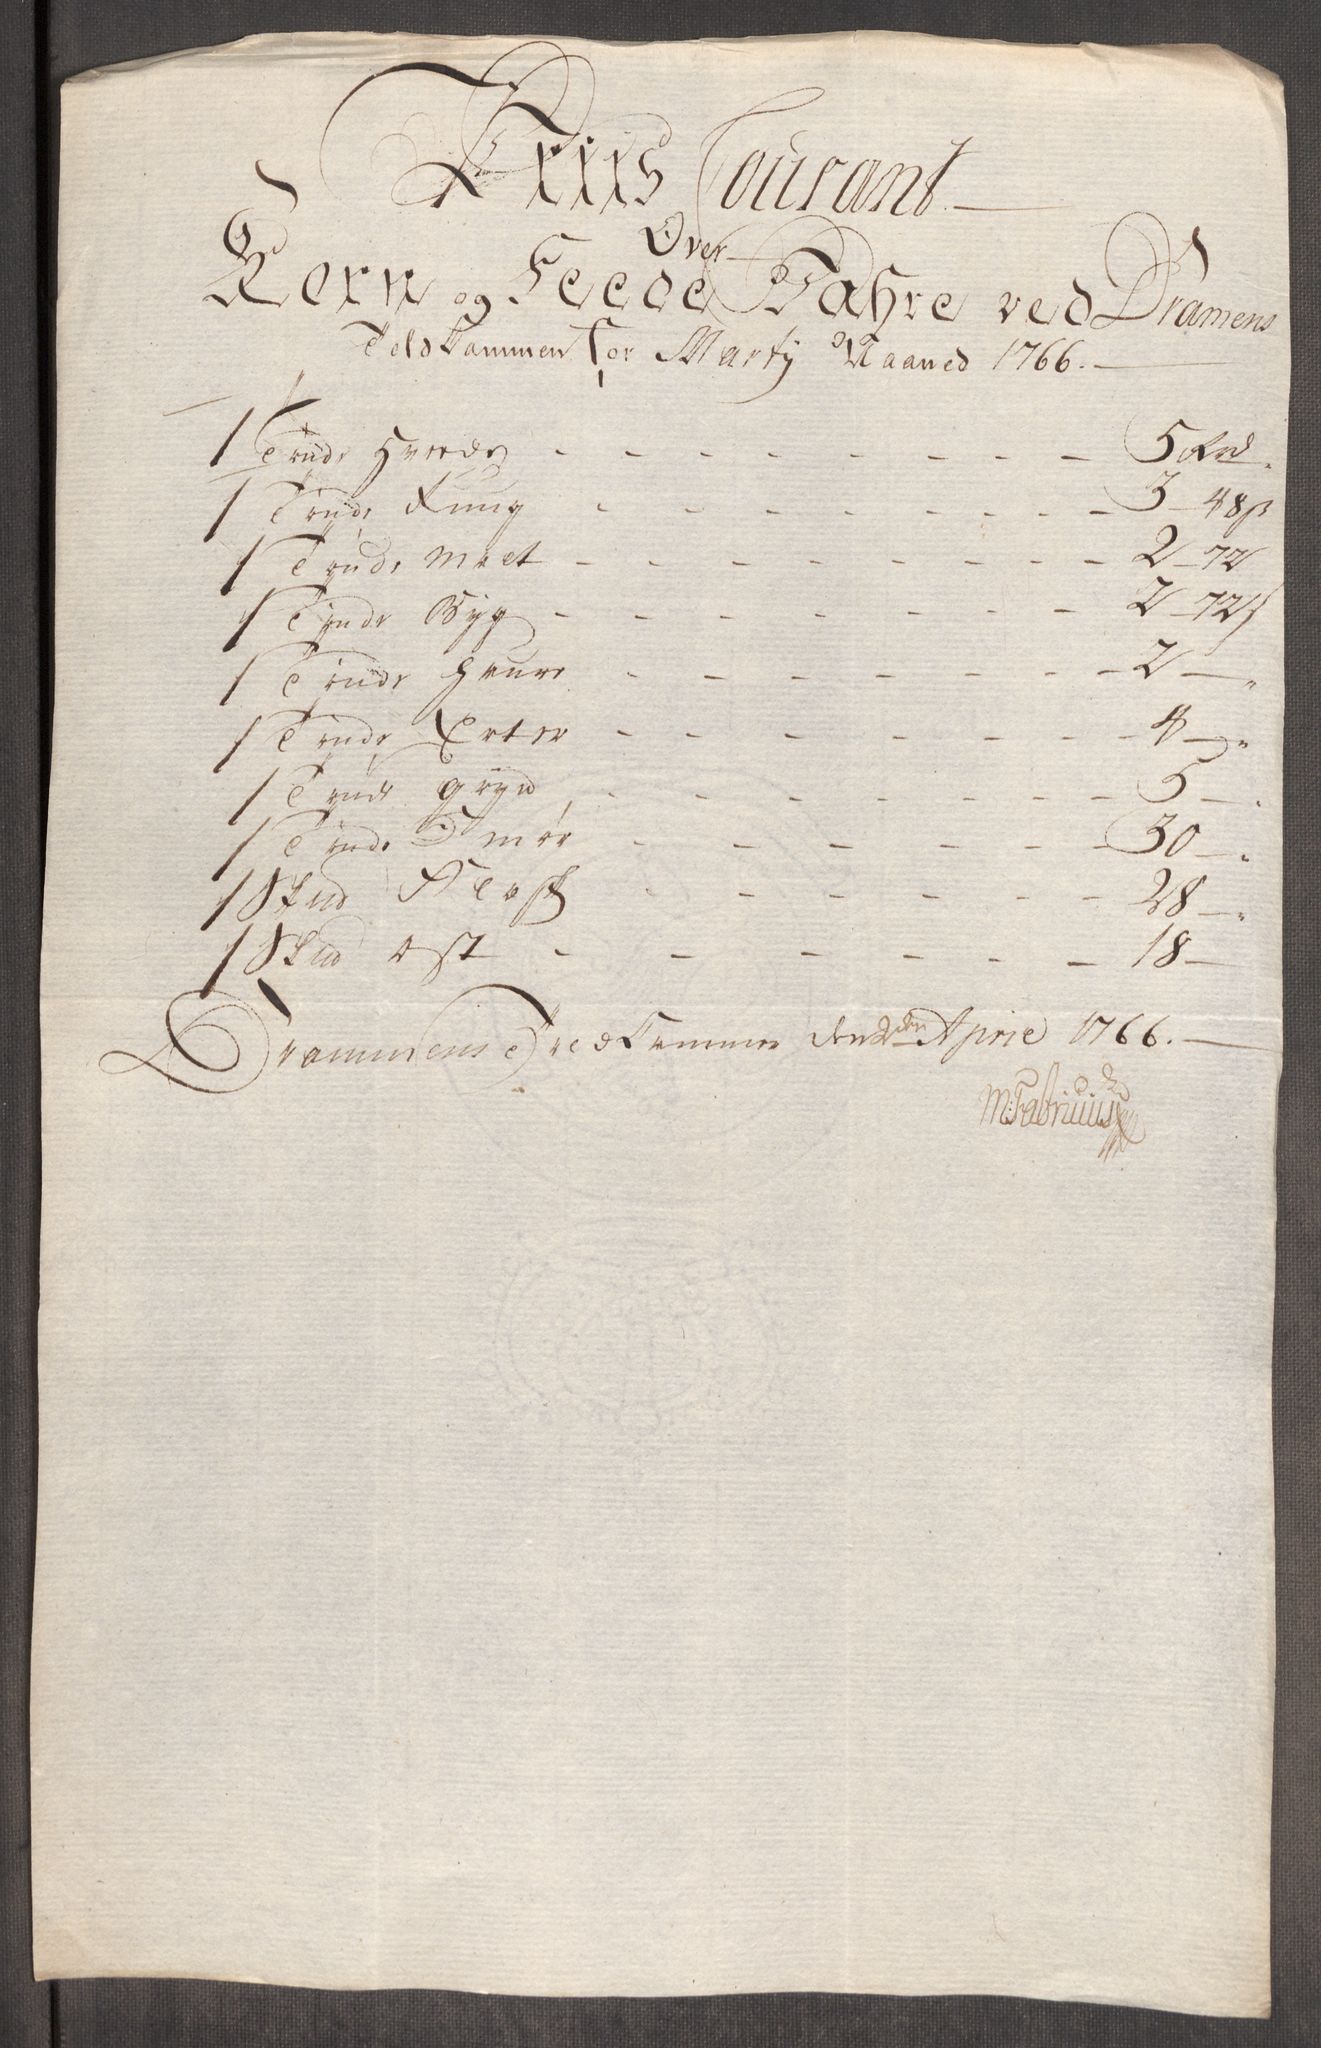 Priis Courant
Over
Korn og Feede Vahre ved Dramens
Told Cammer for Martÿ Maaned 1766.
1 Tynde Hvede - - - - - - - - 5 Rd
1 Tynde Rúúg - - - - - - - - 3 - 48 ß
1 Tynde Malt - - - - - - - - 2 - 72
1 Tynde Byg - - - - - - - - 2 - 72 ß
1 Tynde Haure - - - - - - - 2 - "
1 Tynde Erter - - - - - - - - 4 - "
1 Tynde gryn - - - - - - - - 5 - "
1 Tynde Smør - - - - - - - 30 - "
1 Sk℔d Flesk - - - - - - 28 - "
1 Sk℔d ost - - - - - - - 18 -
Drammens Told Cammer den 2den April 1766.
M: Fabricius